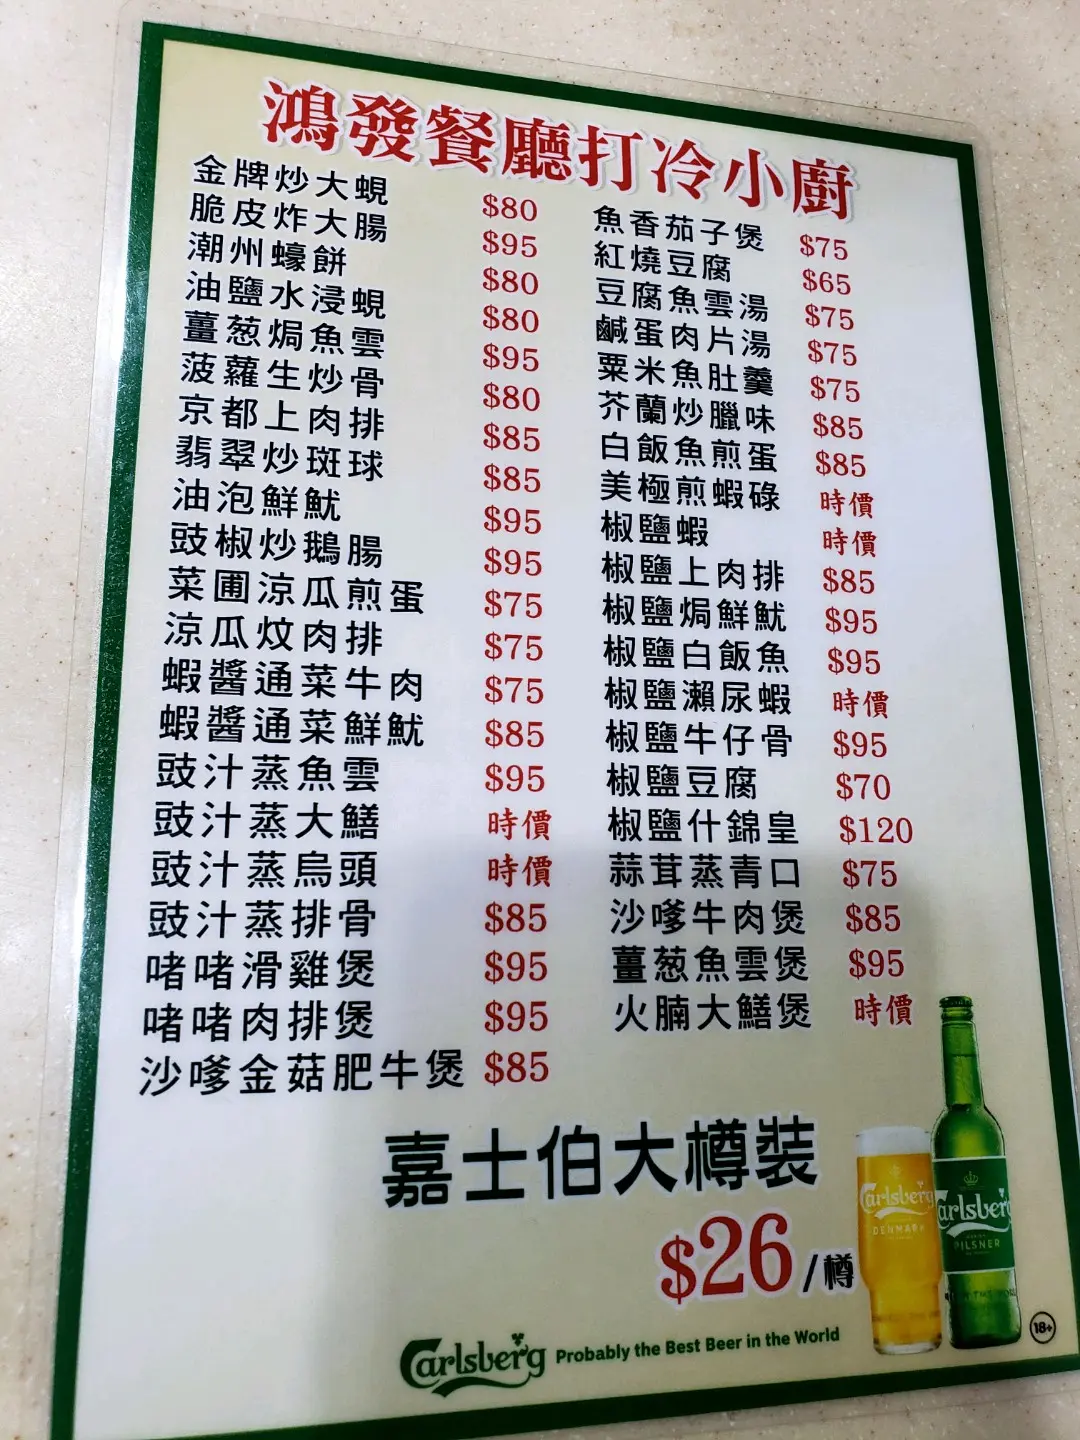 鴻發餐廳打冷小廚
金牌炒大蜆 $80
脆皮炸大腸 $95
潮州蠔餅 $80
油鹽水浸蜆 $80
薑葱焗魚雲 $95
菠蘿生炒骨 $80
京都上肉排 $85
翡翠炒斑球 $85
油泡鮮魷 $95
豉椒炒鵝腸 $95
菜圃涼瓜煎蛋 $75
涼瓜炆肉排 $75
蝦醬通菜牛肉 $75
蝦醬通菜鮮魷 $85
豉汁蒸魚雲 $95
豉汁蒸大鱔 時價
豉汁蒸烏頭 時價
豉汁蒸排骨 $85
啫啫滑雞煲 $95
啫啫肉排煲 $95
沙嗲金菇肥牛煲 $85
魚香茄子煲 $75
紅燒豆腐 $65
豆腐魚雲湯 $75
鹹蛋肉片湯 $75
粟米魚肚羹 $75
芥蘭炒臘味 $85
白飯魚煎蛋 $85
美極煎蝦碌 時價
椒鹽蝦 時價
椒鹽上肉排 $85
椒鹽焗鮮魷 $95
椒鹽白飯魚 $95
椒鹽瀨尿蝦 時價
椒鹽牛仔骨 $95
椒鹽豆腐 $70
椒鹽什錦皇 $120
蒜茸蒸青口 $75
沙嗲牛肉煲 $85
薑葱魚雲煲 $95
火腩大鱔煲 時價
嘉士伯大樽裝
$26/樽
Carlsberg
DENMARK
Carlsberg
PILSNER
18+
Carlsberg Probably the Best Beer in the World